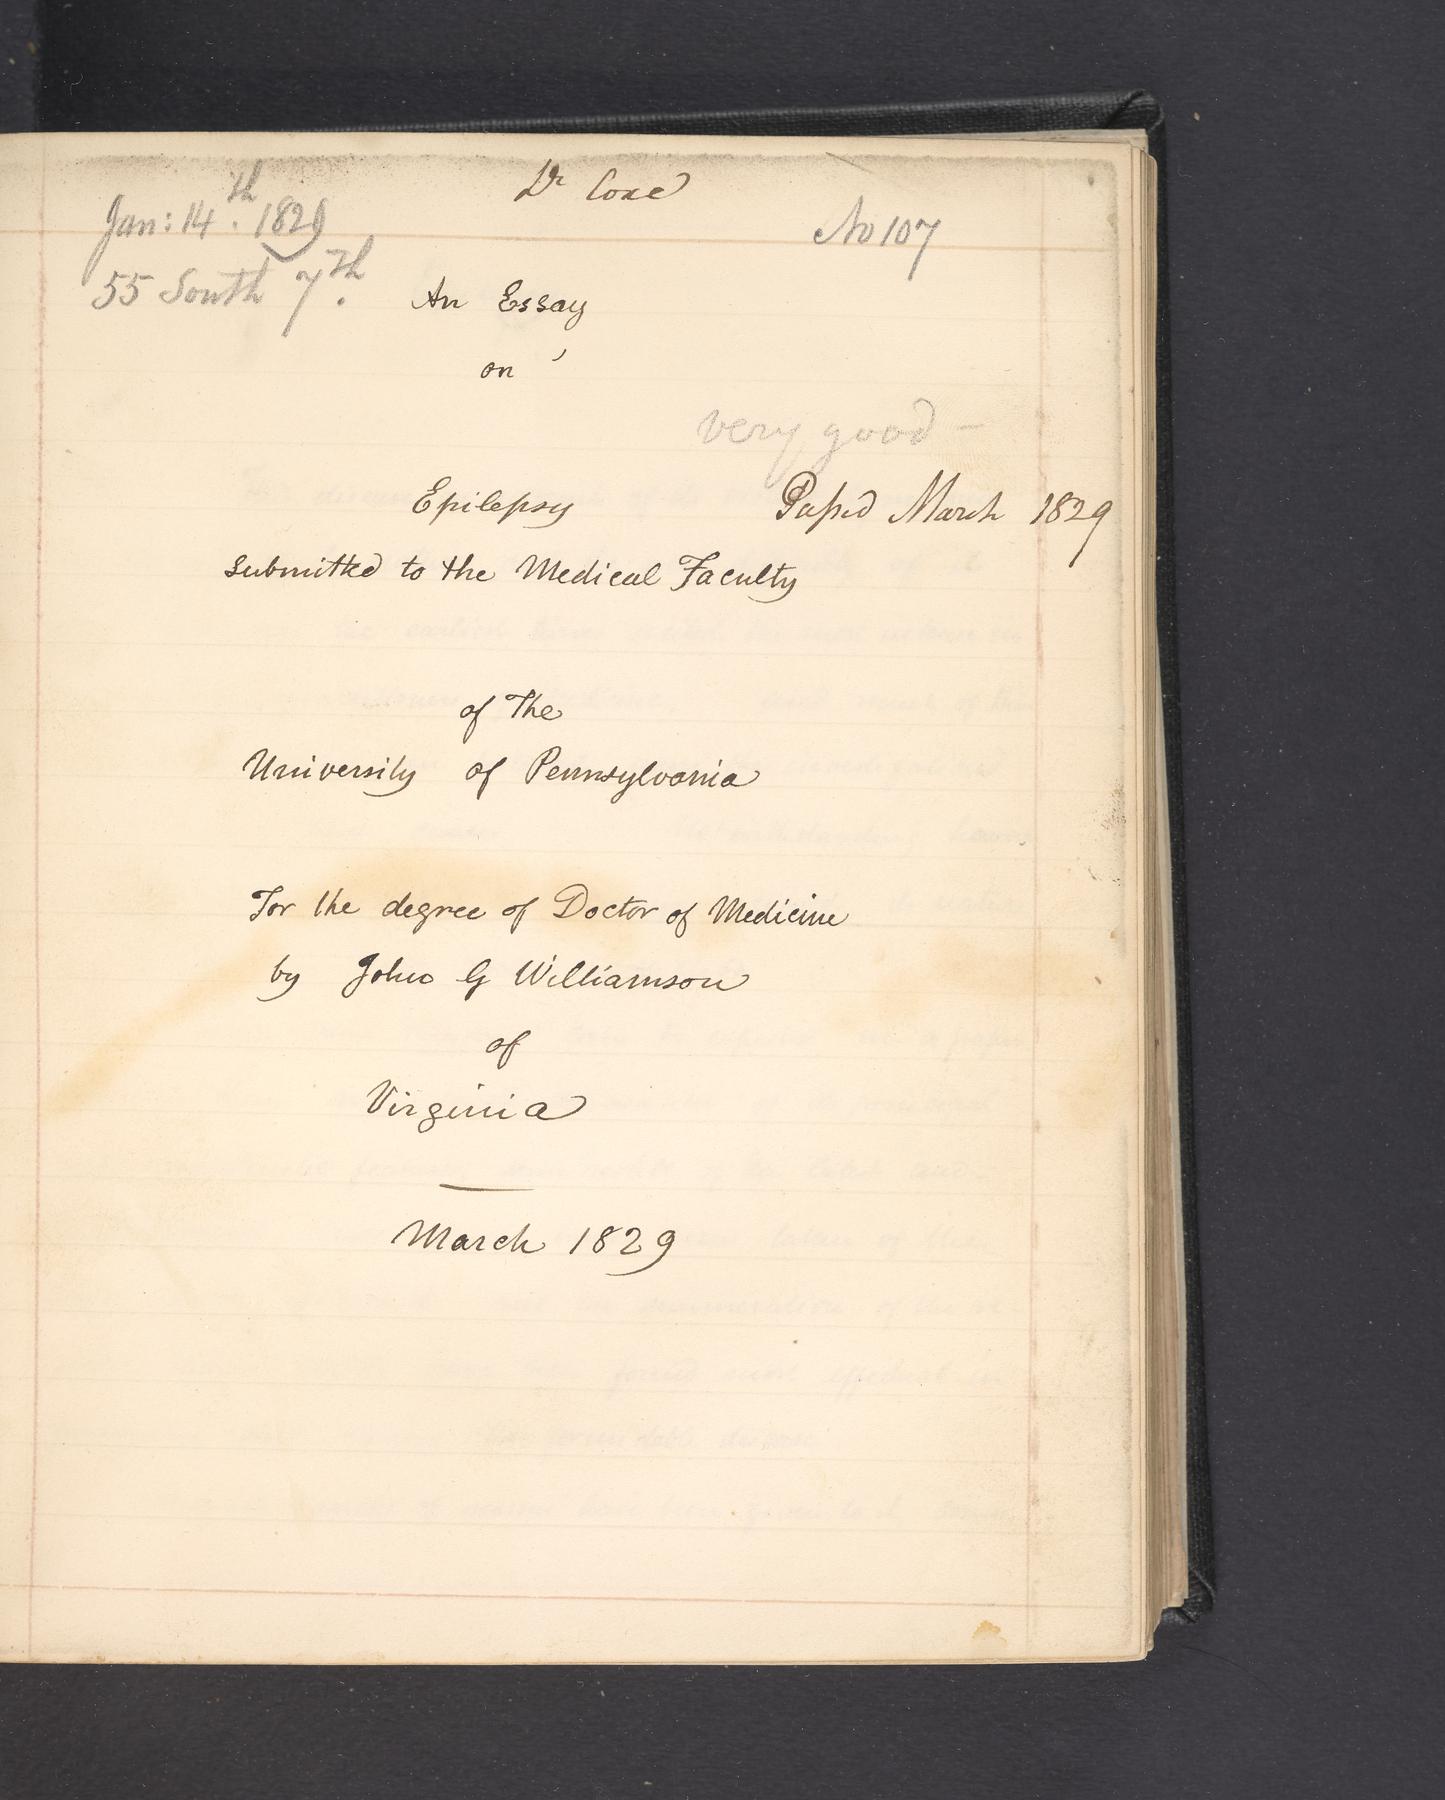 Dr Coxe
Jan: 14th. 1829
No 107
55 South 7th.
An Essay
on
very good -
Epilepsy
Passed March 1829
submitted to the Medical Faculty
of The
University of Pennsylvania
For the degree of Doctor of Medicine
by John G Williamson
of
Virginia
March 1829